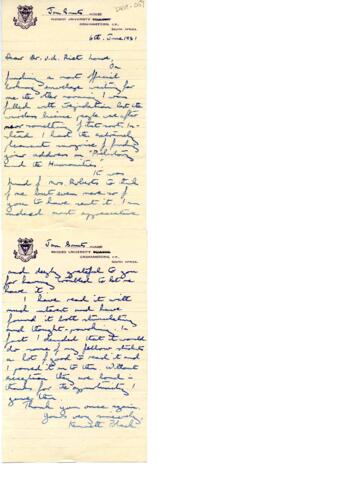 Jan Smuts HOUSE
RHODES UNIVERSITY
GRAHAMSTOWN, C.P.,
SOUTH AFRICA.
6th. June 1961
Dear Dr. v.d. Riet Lowe,
On
finding a most official
looking envelope waiting for
me the other morning I was
filled with trepidation lest the
wireless licence people were after
me or something of that sort. In-
stead I had the extremely
pleasant surprise of finding
your address on "Prehistory
and the Humanities".
It was
kind of Mrs. Roberts to think
of me but even more so of
you to have sent it. I am
indeed most appreciative
Jan Smuts HOUSE
RHODES UNIVERSITY
GRAHAMSTOWN, C.P.,
SOUTH AFRICA.
and deeply grateful to you
for having troubled to let me
have it.
I have read it with
much interest and have
found it both stimulating
and thought-provoking. In
fact I decided that it would
do some of my fellow students
a lot of good to read it and
I passed it on to them. Without
exception they were loud in
thanks for the opportunity I
gave them.
Thank you once again.
Yours very sincerely,
Kenneth